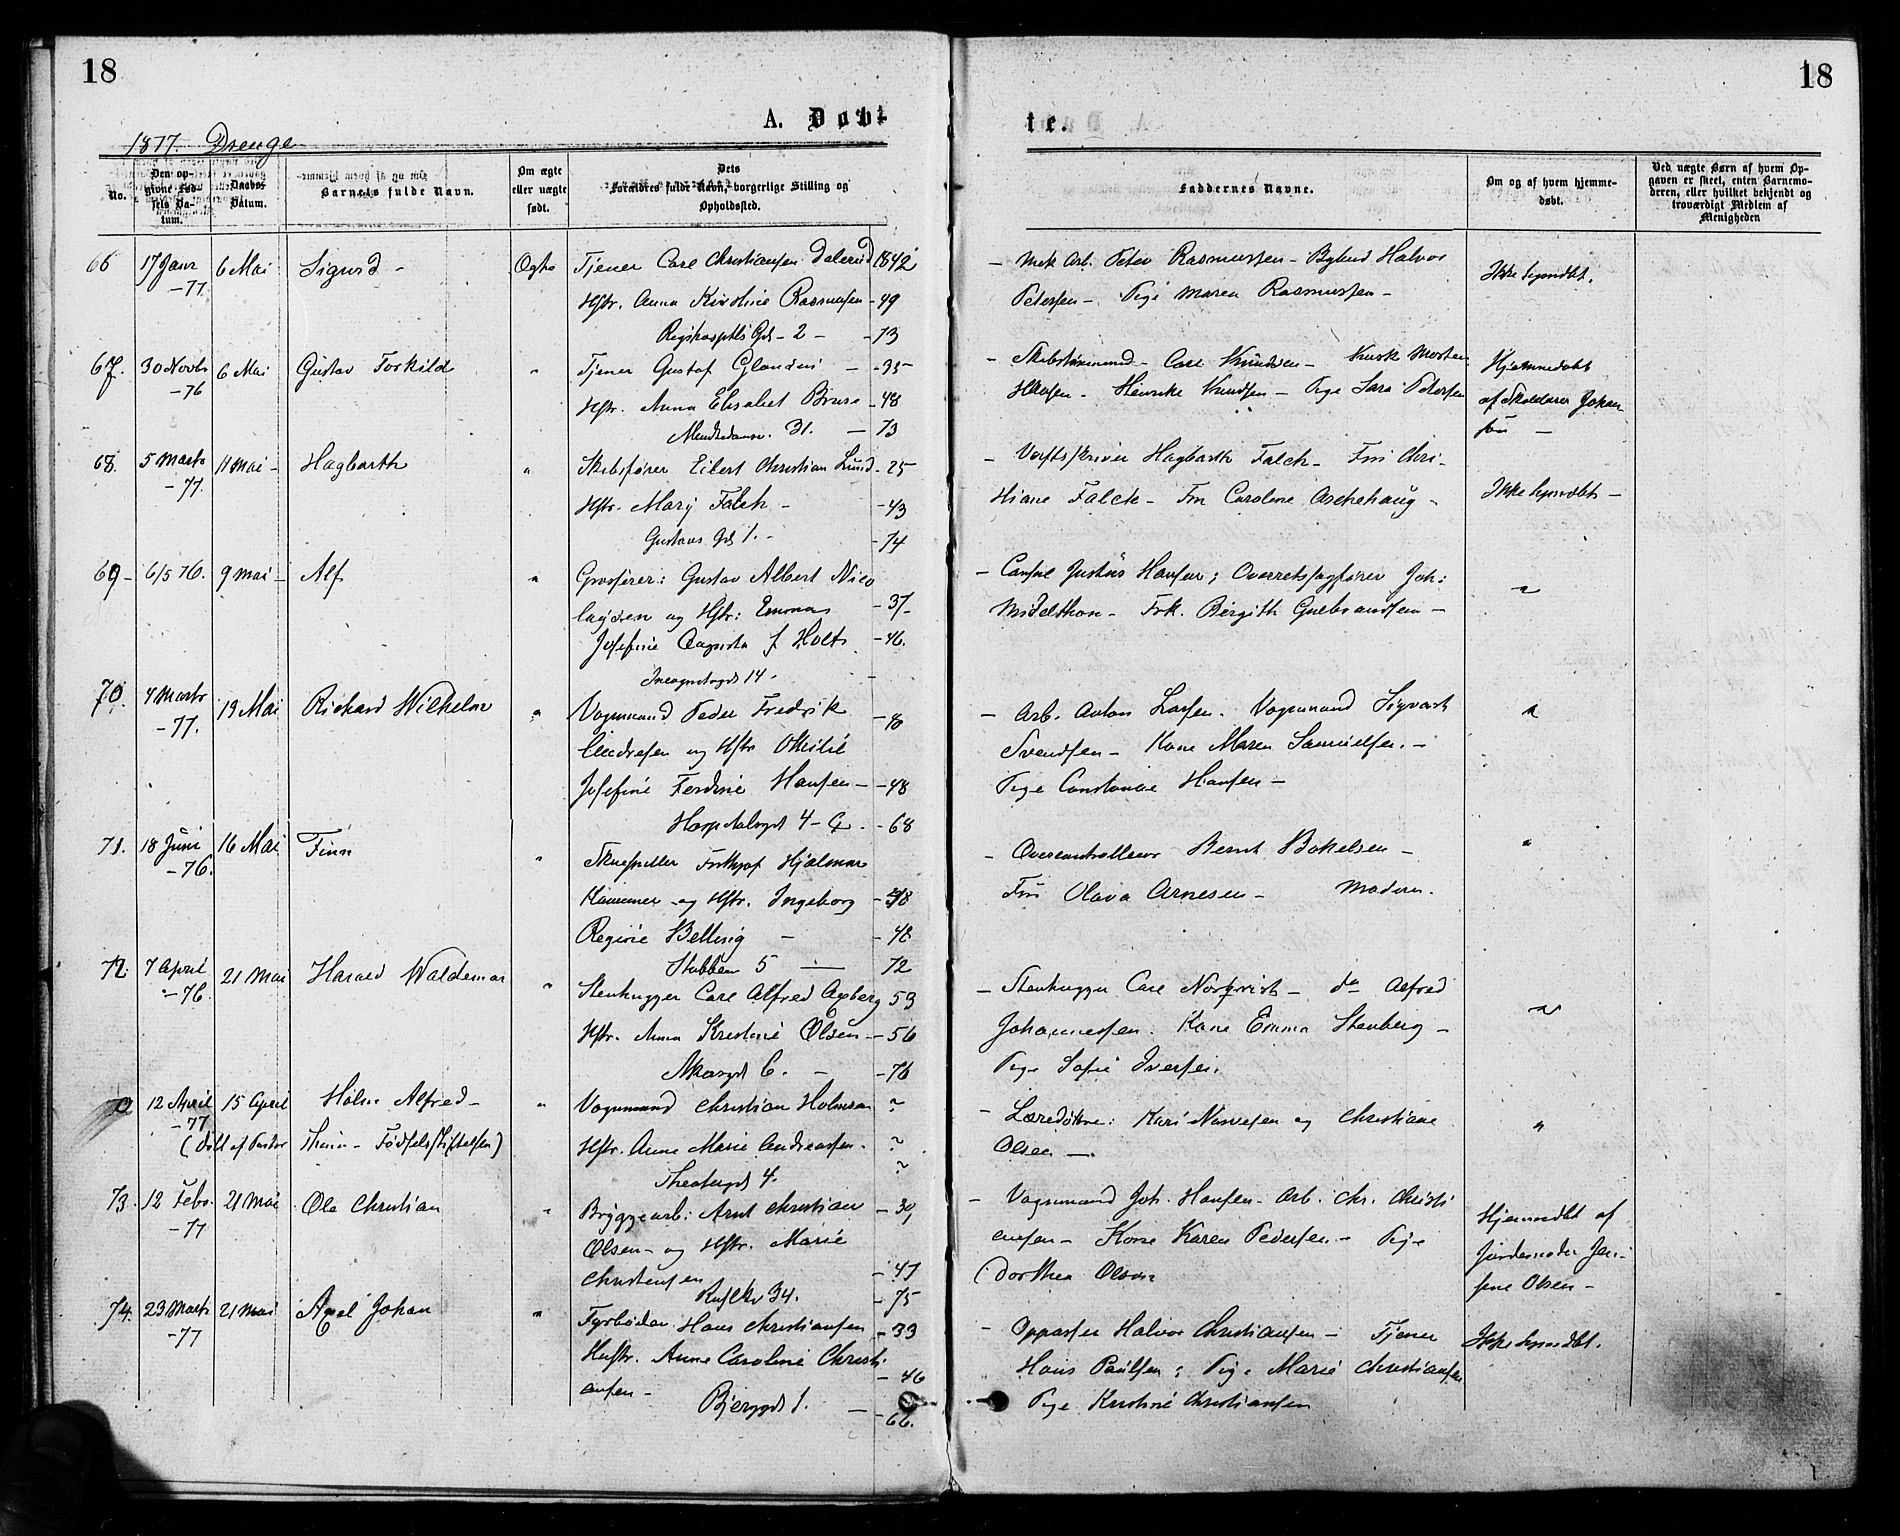 18
18
A. Døbte.
1877 Drenge
No.
Den opgivne Fødsels Datum.
Daabs-Datum.
Barnets fulde Navn.
Om ægte eller uægte født.
Dets Forældres fulde Navn, borgerlige Stilling og Opholdssted.
Faddernes Navne.
Om og af hvem hjemmedøbt.
Ved uægte Børn af hvem Opgaven er skeet, enten Barnemoderen, eller hvilket bekjendt og troværdigt Medlem af Menigheden
66 17 Janr -77 6 Mai Sigurd - Ægte
Tjener Carl Christiansen Dalerud 1842
Hstr. Anna Kirstine Rasmussen - 49
Gd - 2 - - 73
- Mek Arb. Peter Rasmussen - Halvor
Petersen - Pige Maren Rasmussen -
Ikke hjmdbt.
67. 30 Novbr -76 6 Mai Gustav Torkild "
Tjener Gustaf - - 35
Hstr. Anna Elisabet Bruse - 48
31. - 73
- Carl Knudsen - Morten
Hansen - Henrike Knudsen - Pige Sara Petersen
Hjemmedøbt
af Skolelærer Johan-
sen -
68. 5 Marts -77. 11 Mai - Hagbarth "
Skibsfører Eilert Christian Lund - 25
Hstr. Mary Falck - - 43
Gustavs Gd 1. - - 74
- Hagbarth Falck - Fru Chri-
stiane Falck - Fru Caroline Aschehaug -
Ikke hjmdbt -
69 - 6/5 76. 9 Mai - Alf "
Grosserer: Gustav Albert Nico
laysen og Hstr: Emma - 37
Josefine Augusta f Holts - 46.
Incognitogd 14. -
- Consul Justus Hansen; Overretssagfører Joh:
Middelthon - Frk. Birgith Gulbrandsen -
"
70. 4 Marts -77. 13 Mai Richard Wilhelm "
Vognmand Peder Fredrik
og Hstr Ottilie
Josefine Ferdine Hansen - - 48
Hospitalsgd 4 - - 68
- Arb. Anton Larsen. Vognmand Sigvart
Svendsen - Kone Maren Samuelsen. -
Pige Constance Hansen -
"
71. 18 Juni -76. 16 Mai Finn "
Skuespiller Frithjof Hjalmar
og Hstr. Ingeborg
Regine Belling - - 48
Stubben 5 - 72
- Overcontrolleur Bernt Bokelsen -
Fru Olava Arnesen - Modern.
"
72. 7 April -76 21 Mai Harald Waldemar "
Stenhugger Carl Alfred Axberg 53
Hstr. Anna Kristine Olsen - 56
6. - - 76
- Stenhugger Carl Norqvist - do Alfred
Johannessen. Kone Emma Stenberg -
Pige Sofie Iversen.
"
12 April -77 15 April Holm Alfred - "
(Døbt af Pastor Thurin - Fødselsstiftelsen)
Vognmand Christian Holmsen ?
Hstr. Anne Marie Andreassen. ?
Theatergd 4. ?
- Læredøttre: Kari Narvesen og Christiane
Olsen -
"
73. 12 Febr. -77 21 Mai Ole Christian "
Bryggearb: Arnt Christian - 39
Olsen - og Hstr. Marie
Christensen - 47
34. - 75
- Vognmand Joh. Hansen - Arb. Chr. Christi
ansen - Kone Karen Pedersen - Pige
Dorthea Olsen
Hjemmdbt af
Jordemoder Jen-
sine Olsen -
74. 23 Marts -77 21 Mai Axel Johan "
Fyrbøder Hans Christiansen - 33
Hustr. Anne Caroline Christi - 46
ansen -
Bjerggd 1. - - 66.
- Oppasser Halvor Christiansen - Tjener
Hans Paulsen; Pige Marie Christiansen
Pige Kristine Christiansen
Ikke hjmdbt.